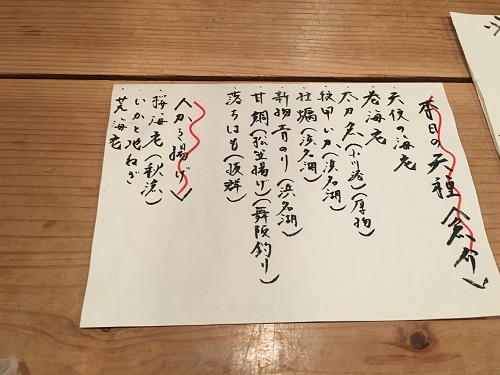 本日の天種〈魚介〉
・天使の海老
・巻海老
・太刀魚(小川港)(厚物)
・紋甲いか(浜名湖)
・牡蠣(浜名湖)
・新物青のり(浜名湖)
・甘鯛(松笠揚げ)(舞阪釣り)
・落ちはも(抜群)
〈かき揚げ〉
・桜海老(秋漁)
・いかと地ねぎ
・芝海老